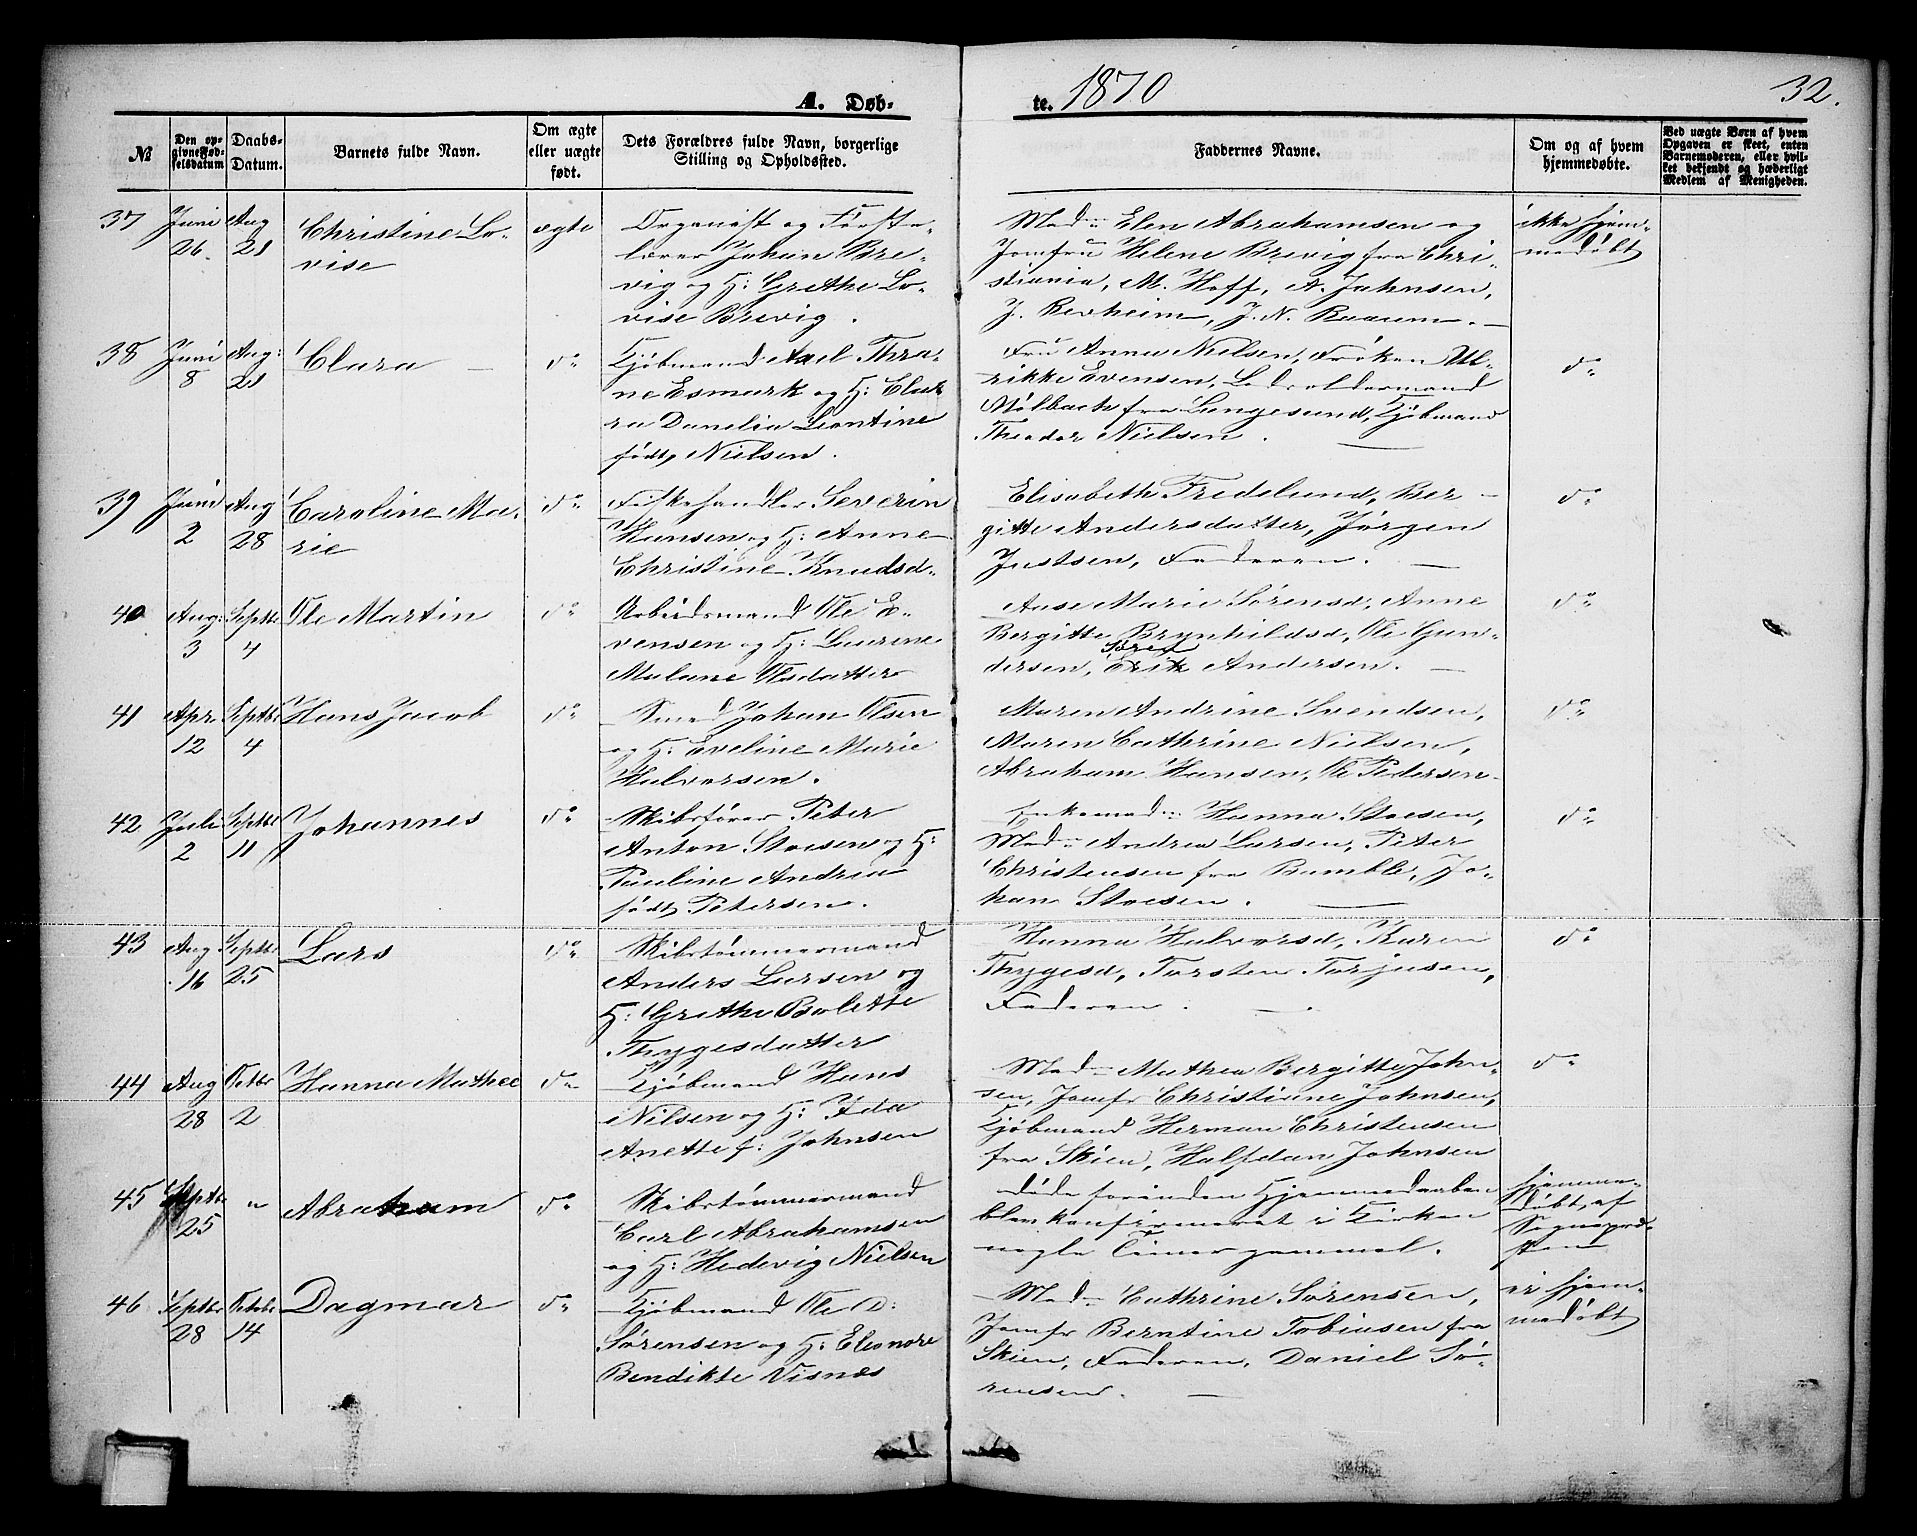 A. Døb-
te. 1870
32.
№
Den op-
givne Fød-
selsdatum
Daabs-
Datum.
Barnets fulde Navn.
Om ægte
eller uægte
født.
Dets Forældres fulde Navn, borgerlige
Stilling og Opholdssted.
Faddernes Navne.
Om og af hvem
hjemmedøbte.
Ved uægte Børn af hvem
Opgaven er skeet, enten
Barnemoderen, eller hvil-
ket bekjendt og hæderligt
Medlem af Menigheden.
37
Juni
26.
Aug
21
Christine Lo-
vise
ægte
Organist og Første-
lærer Johan Bre-
vig og H: Grethe Lo-
vise Brevig.
Mad. Elen Abrahamsen og
Jomfru Helene Brevig fra Chri-
stiania, M. Hoff, A. Jahnsen,
J. Rexheim, J. N. Raaum.
ikke hjem-
medøbt
38
Juni
8
Aug:
21
Clara
do
Kjøbmand Axel Thra-
ne Esmark og H: Cla-
ra Danelia Leontine
født Nielsen.
Fru Anna Nielsen, Frøken Ul-
rikke Evensen, Lodsoldermand
Mølbach fra Langesund, Kjøbmand
Theodor Nielsen.
do
39
Juni
2
Aug
28
Caroline Ma-
rie
do
Fiskehandler Severin
Hansen og H: Anne
Christine Knudsd.
Elisabeth Fredelund, Ber-
gitte Andersdatter, Jørgen
Justsen, Faderen.
do
40
Aug:
3
Septbr
4
Ole Martin
do
Arbeidsmand Ole E-
vensen og H: Laurine
Malane Olsdatter
Anse Marie Sørensd, Anne
Bergitte Brynhildsd, Ole Gun-
dersen, Søren Erik Andersen.
do
41
Apr
12
Septbr
4
Hans Jacob
do
Smed Johan Olsen
og H: Eveline Marie
Halvorsen.
Maren Andrine Svendsen,
Maren Cathrine Nielsen,
Abraham Hansen, Ole Pedersen
do
42
Juli
2
Septbr
11
Johannes
do
Skibsfører Peter
Anton Stoesen og H:
Pauline Andrea
født Petersen.
Enkemad. Hanna Stoesen,
Mad. Andrea Larsen, Peter
Christensen fra Bamble, Jo-
han Stoesen.
do
43
Aug
16
Septbr
25
Lars
do
Skibstømmermand
Anders Larsen og
H: Grethe Bolette
Thygesdatter
Hanna Halvorsd, Karen
Thygesd, Torsten Torjusen,
Faderen.
do
44
Aug
28
Octbr
2
Hanna Mathea
do
Kjøbmand Hans
Nilsen og H: Ida
Anette f: Johnsen
Mad. Mathea Bergitte John-
sen, Jomfr Christiane Johnsen,
Kjøbmand Herman Christensen
fra Skien, Halfdan Johnsen
do
45
Septbr
25
"
Abraham
do
Skibstømmermand
Carl Abrahamsen
og H: Hedevig Nielsen
døde forinden Hjemmedaaben
blev konfirmeret i Kirken
nogle Timer gammel.
hjemme-
døbt af
Sognepre-
sten
46
Septbr
28
Octbr
14
Dagmar
do
Kjøbmand Ole D:
Sørensen og H: Eleonore
Bendikte Visnes
Mad. Cathrine Sørensen,
Jomfr Berntine Tobiasen fra
Skien, Faderen, Daniel Sø-
rensen.
ei hjem-
medøbt